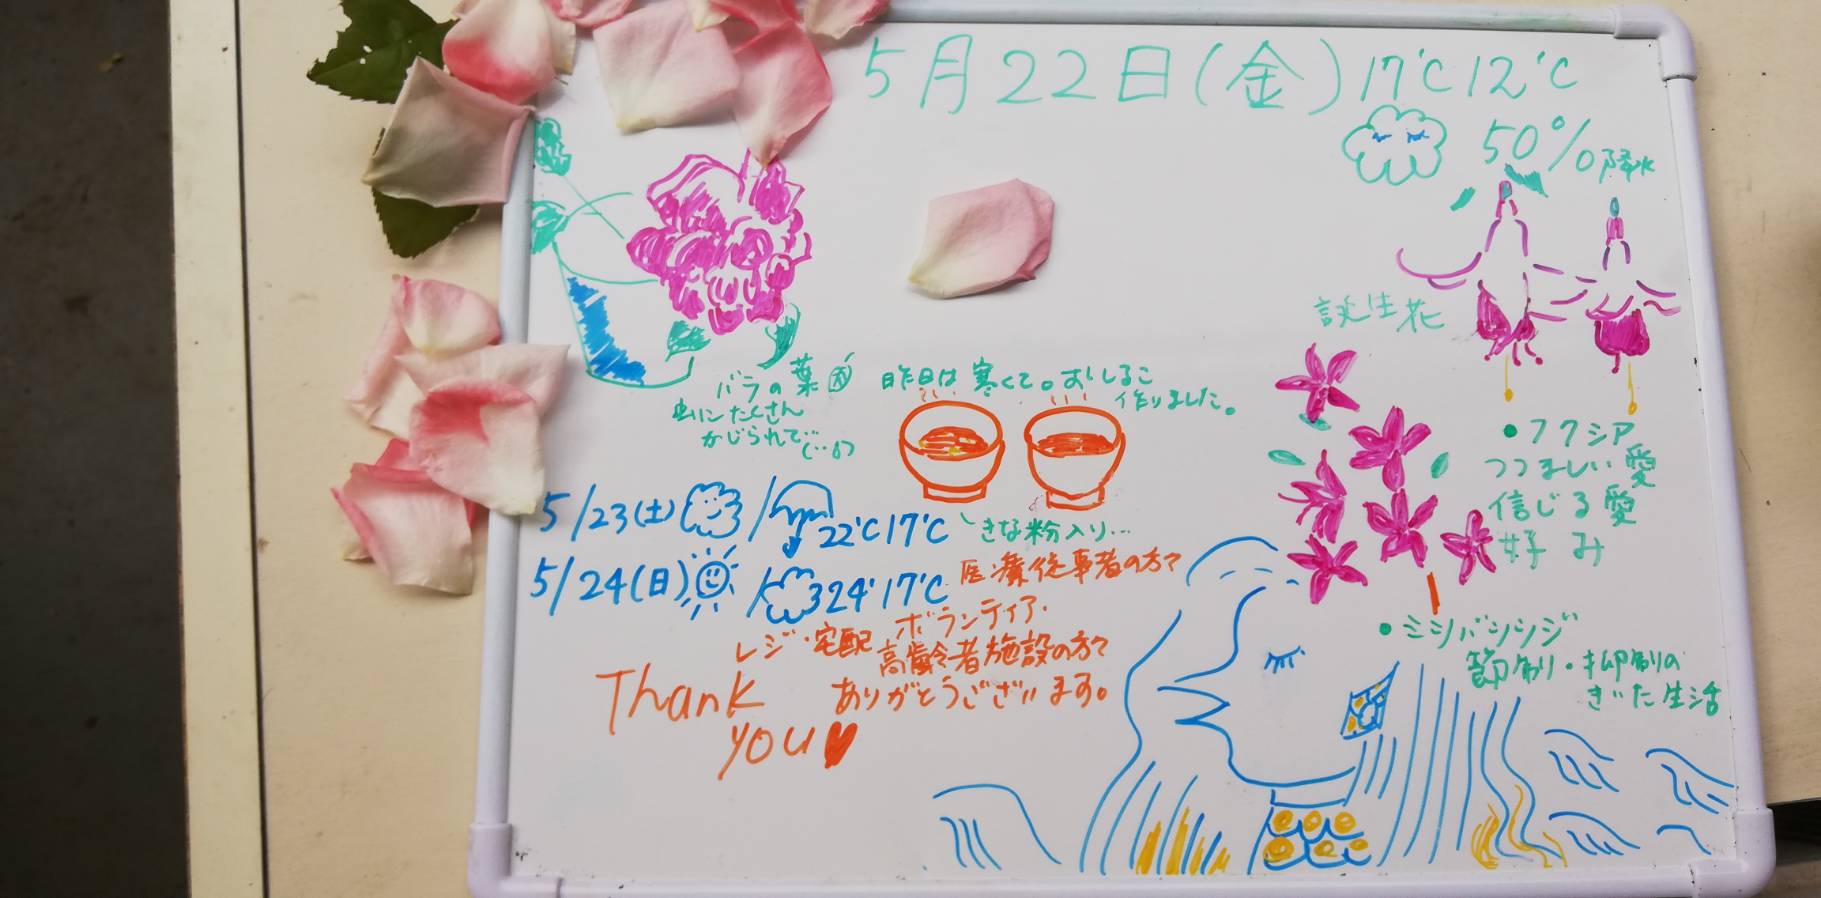 5月22日(金) 17℃ 12℃
50% 降水
誕生花
バラの葉
虫にたくさん
かじられて
昨日は寒くて。おしるこ
作りました。
きな粉入り…
●フクシア
つつましい愛
信じる愛
好み
5/23(土) / 22℃ 17℃
5/24(日) / 24° 17℃
医療従事者の方々
ボランティア・
レジ・宅配 高齢者施設の方々
ありがとうございます。
Thank
you
●ミツバツツジ
節制・抑制の
きいた生活